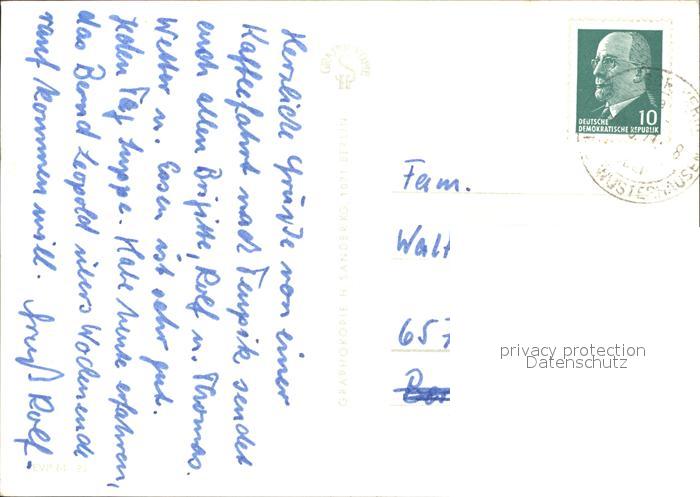 Herzliche Grüße von einer
Kaffeefahrt nach Teupitz sendet
euch allen Brigitte, Rolf u. Thomas.
Wetter u. Essen ist sehr gut.
Jeden Tag Suppe. Habe heute erfahren,
das Bernd Leopold übers Wochenende
rauf kommen will. Gruß Rolf.
GRAPHOKOPIE H. SANDER KG, 1071 BERLIN
DEUTSCHE
DEMOKRATISCHE REPUBLIK
10
WUSTERHAUSEN
Fam.
Walt
657
privacy protection
Datenschutz